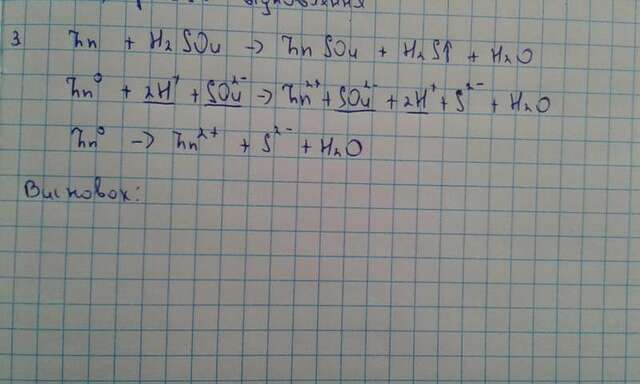 3 Zn + H₂SO₄ → ZnSO₄ + H₂S↑ + H₂O
Zn⁰ + 2H⁺ + SO₄²⁻ → Zn²⁺ + SO₄²⁻ + 2H⁺ + S²⁻ + H₂O
Zn⁰ → Zn²⁺ + S²⁻ + H₂O
Висновок: